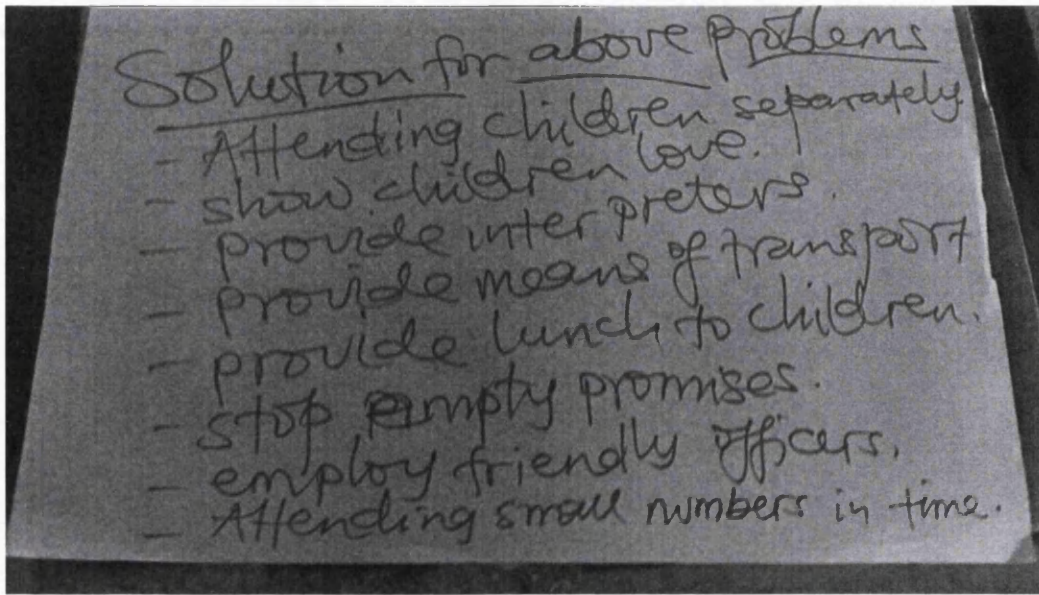 Solution for above problems
- Attending children separately.
- show children love.
- provide interpreters.
- provide means of transport
- provide lunch to children.
- stop empty promises.
- employ friendly officers.
- Attending small numbers in time.